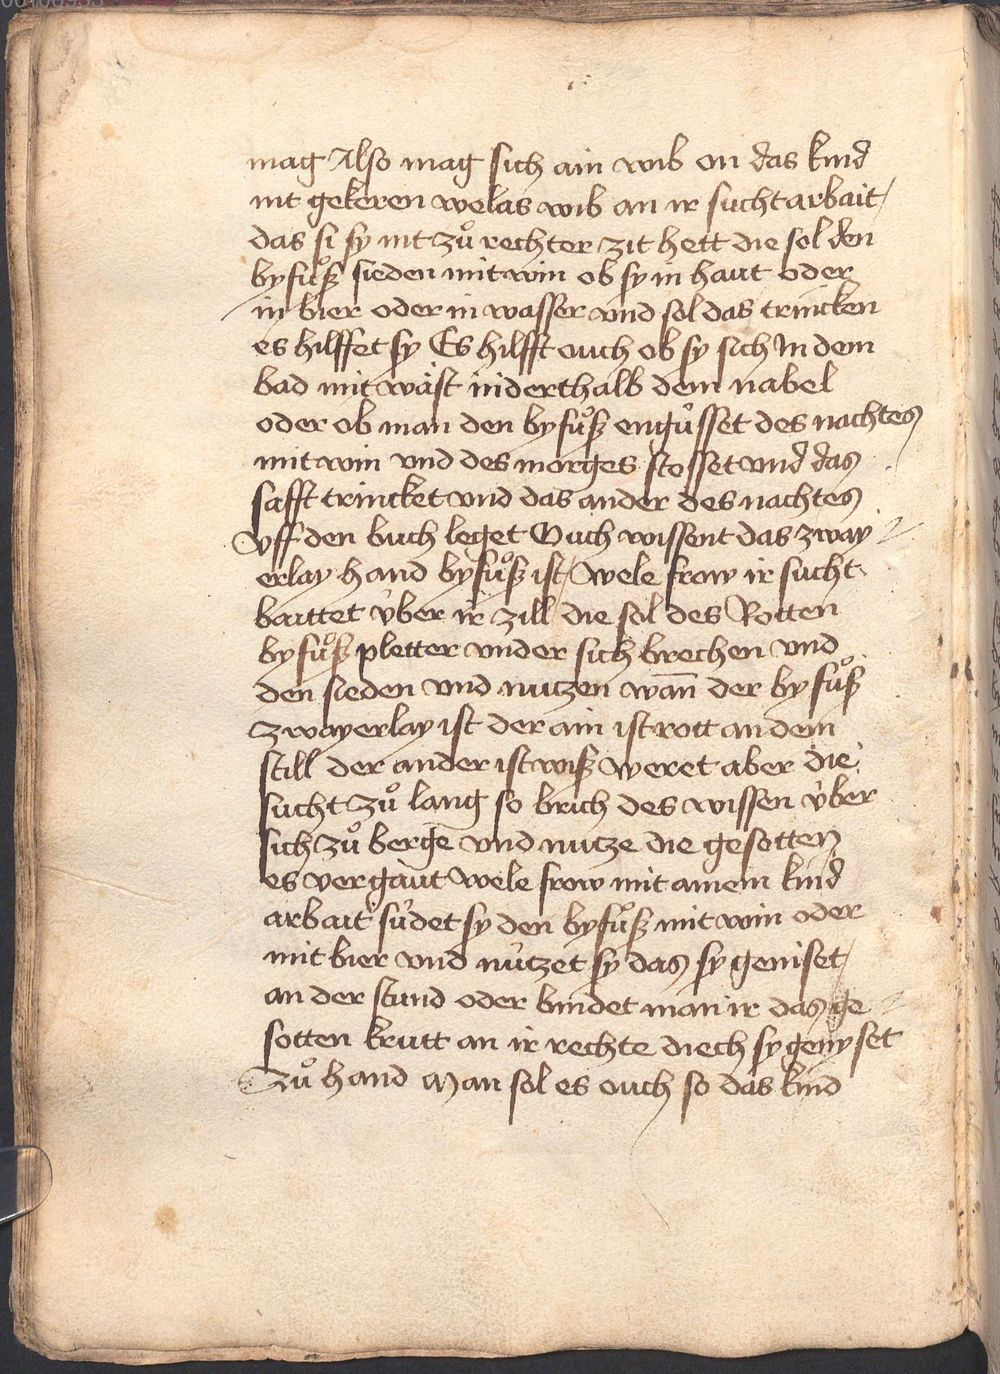 mag Also mag sich ain wib on das kind
nit gekeren welas wib an ir sucht arbait /
das si sy nit zuͦ rechter zit hett die sol den
byfuͦß sieden mit win ob sy in haut oder
in bier oder in wasser vnd sol das trincken
es hilffet sy Es hilfft ouch ob sy sich In dem
bad mit wäst niderthalb dem nabel
oder ob man den byfuͦß engu̍sset des nachtes
mit win vnd des morges stosset vnd das
safft trincket vnd das ander des nachtes
vff den buch leget Ouch wissent das zway
erlay hand byfuͦß ist / wele frow ir sucht
baittet v̍ber ir zill die sol des Rotten
byfuͦß pletter vnder sich brechen vnd
den sieden vnd nutzen wan̄ der byfuͦß
zwayerlay ist der ain ist rott an dem
still der ander ist wiß weret aber die
sucht zuͦ lang so brich des wissen v̍ber
sich zuͦ berge vnd nutze die gesotten
es vergaut wele frow mit ainem kind
arbait su̍det sy den byfuͦß mit win oder
mit bier vnd nu̍tzet sy das sy geniset /
an der stund oder bindet man ir das ge
sotten krutt an ir rechte diech sy genyset
Zuͦ hand Man sol es ouch so das kind